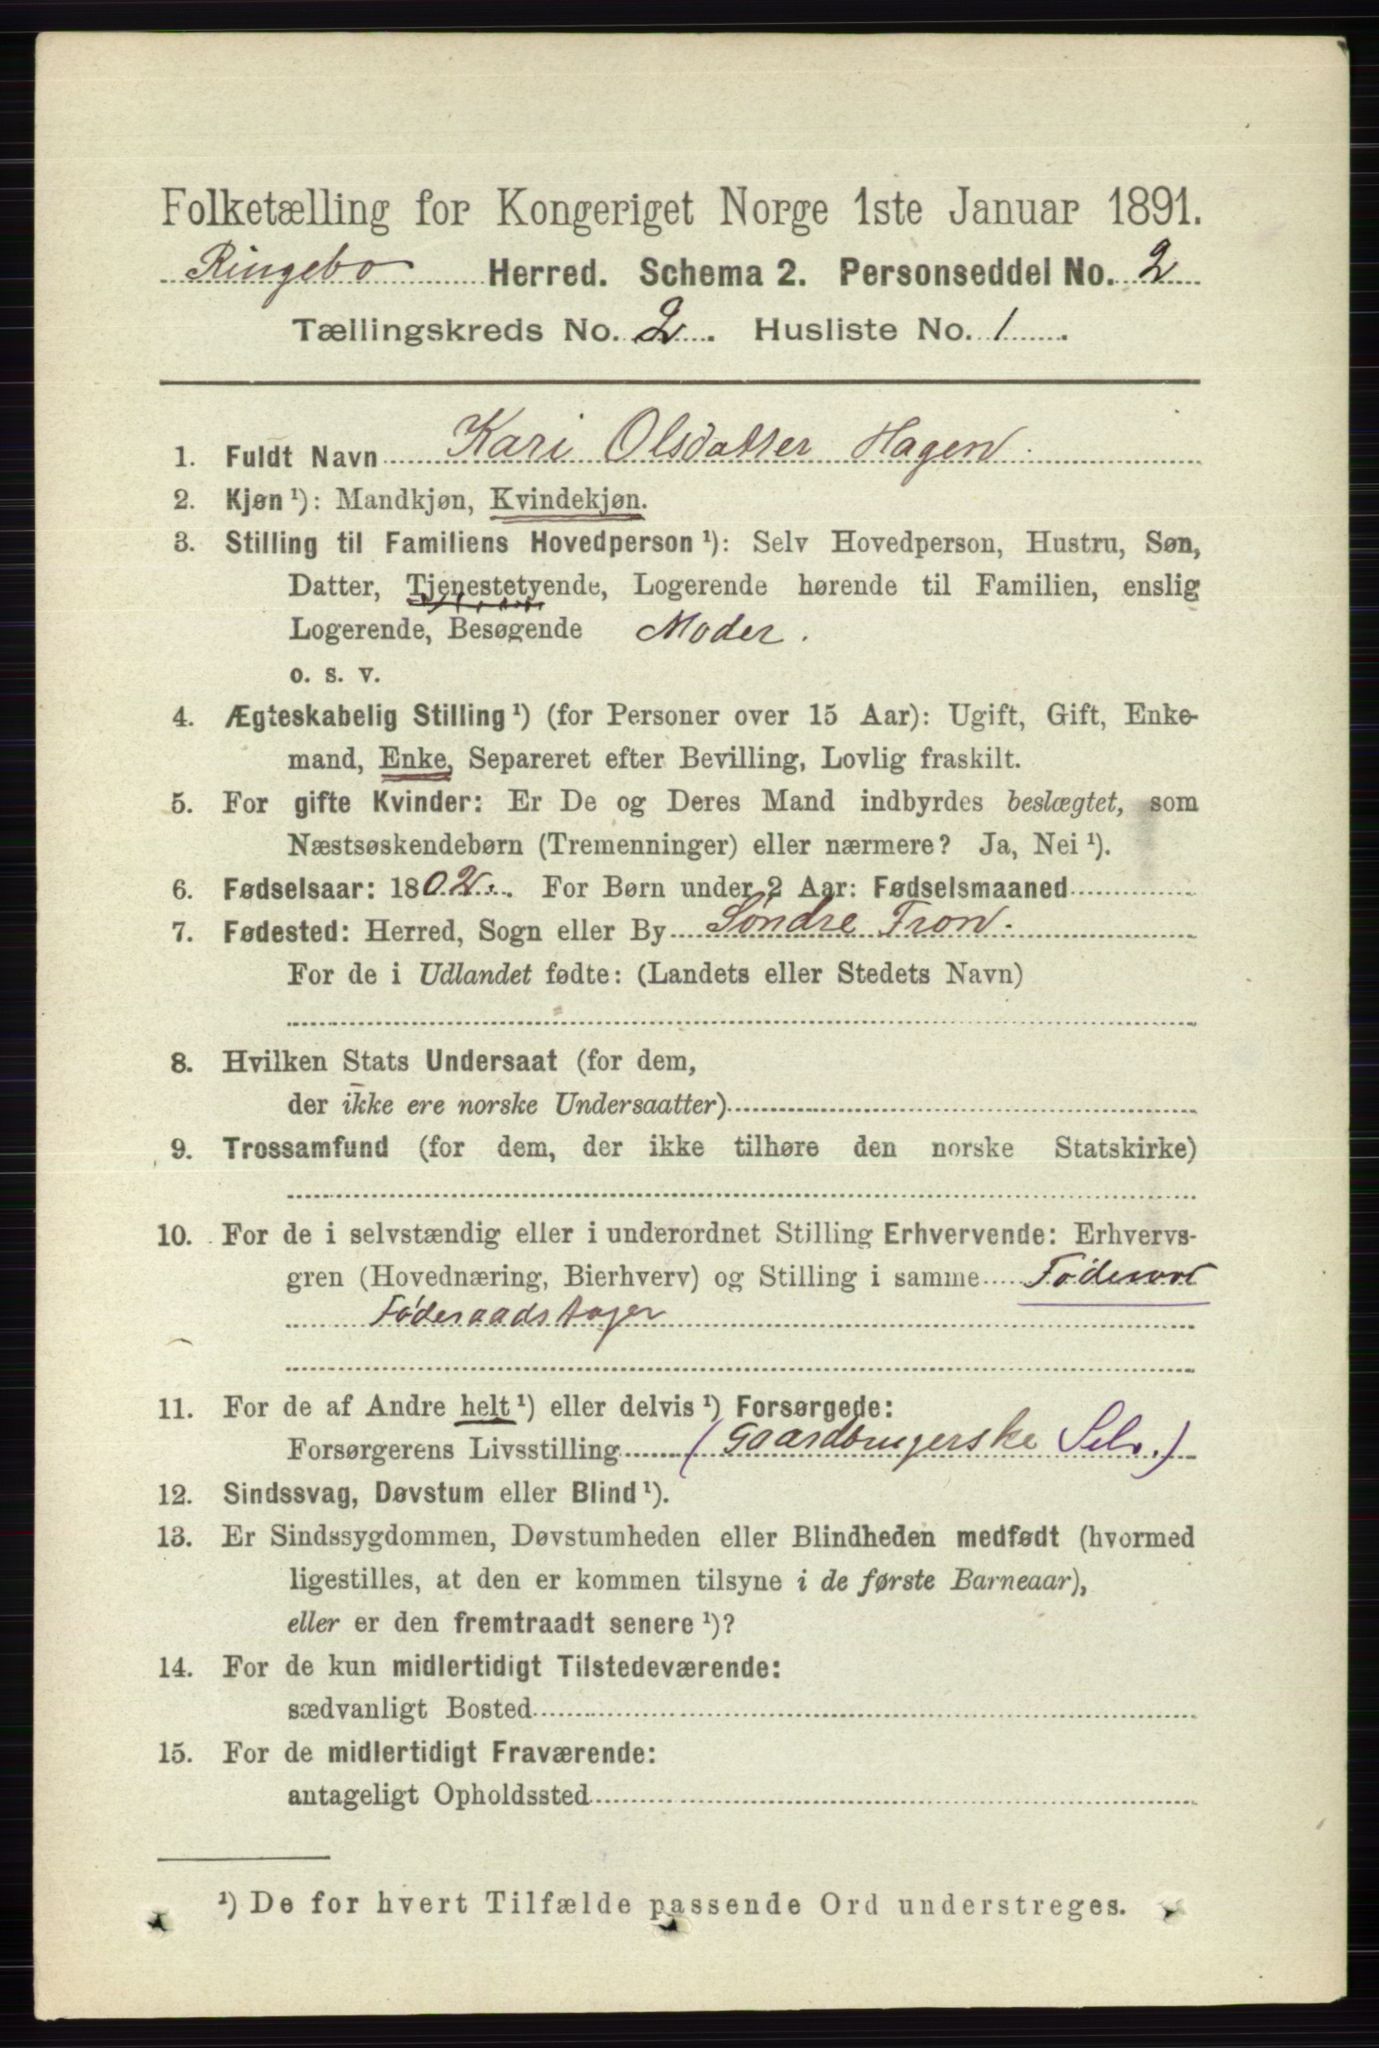 Folketælling for Kongeriget Norge 1ste Januar 1891.
Ringebo Herred. Schema 2. Personseddel No. 2
Tællingskreds No. 2. Husliste No. 1.
1. Fuldt Navn Kari Olsdatter Hagen.
2. Kjøn ¹): Mandkjøn, Kvindekjøn.
3. Stilling til Familiens Hovedperson ¹): Selv Hovedperson, Hustru, Søn,
Datter, Tjenestetyende, Logerende hørende til Familien, enslig
Logerende, Besøgende Moder.
o. s. v.
4. Ægteskabelig Stilling ¹) (for Personer over 15 Aar): Ugift, Gift, Enke-
mand, Enke, Separeret efter Bevilling, Lovlig fraskilt.
5. For gifte Kvinder: Er De og Deres Mand indbyrdes beslægtet, som
Næstsøskendebørn (Tremenninger) eller nærmere? Ja, Nei ¹).
6. Fødselsaar: 1802. For Børn under 2 Aar: Fødselsmaaned
7. Fødested: Herred, Sogn eller By Söndre Fron.
For de i Udlandet fødte: (Landets eller Stedets Navn)
8. Hvilken Stats Undersaat (for dem,
der ikke ere norske Undersaatter)
9. Trossamfund (for dem, der ikke tilhøre den norske Statskirke)
10. For de i selvstændig eller i underordnet Stilling Erhvervende: Erhvervs-
gren (Hovednæring, Bierhverv) og Stilling i samme
Föderaadstager
11. For de af Andre helt ¹) eller delvis ¹) Forsørgede:
Forsørgerens Livsstilling (Gaardbrugerske Selv.)
12. Sindssvag, Døvstum eller Blind ¹).
13. Er Sindssygdommen, Døvstumheden eller Blindheden medfødt (hvormed
ligestilles, at den er kommen tilsyne i de første Barneaar),
eller er den fremtraadt senere ¹)?
14. For de kun midlertidigt Tilstedeværende:
sædvanligt Bosted
15. For de midlertidigt Fraværende:
antageligt Opholdssted
¹) De for hvert Tilfælde passende Ord understreges.